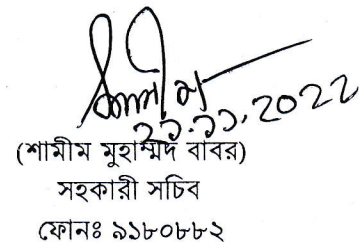 ২১.১১.2022
(শামীম মুহাম্মদ বাবর)
সহকারী সচিব
ফোনঃ ৯১৮০৮৮২